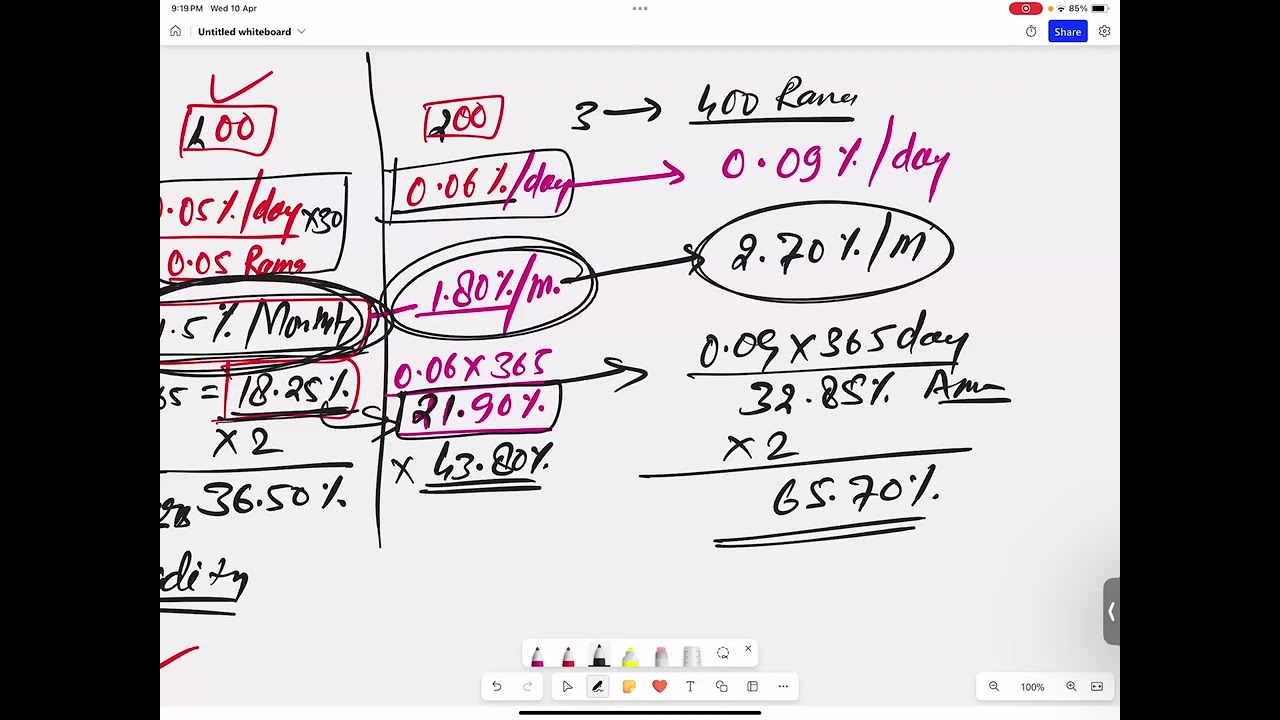 9:19 PM Wed 10 Apr
85%
Untitled whiteboard
Share
100
0.05%/day ×30
0.05 Rama
1.5%/Monthly
65 = 18.25%
× 2
36.50%
200
0.06%/day
1.80%/m.
0.06 × 365
21.90%
× 43.80%
3 → 400 Rama
0.09%/day
2.70%/M
0.09 × 365 day
32.85%
× 2
65.70%
T
100%